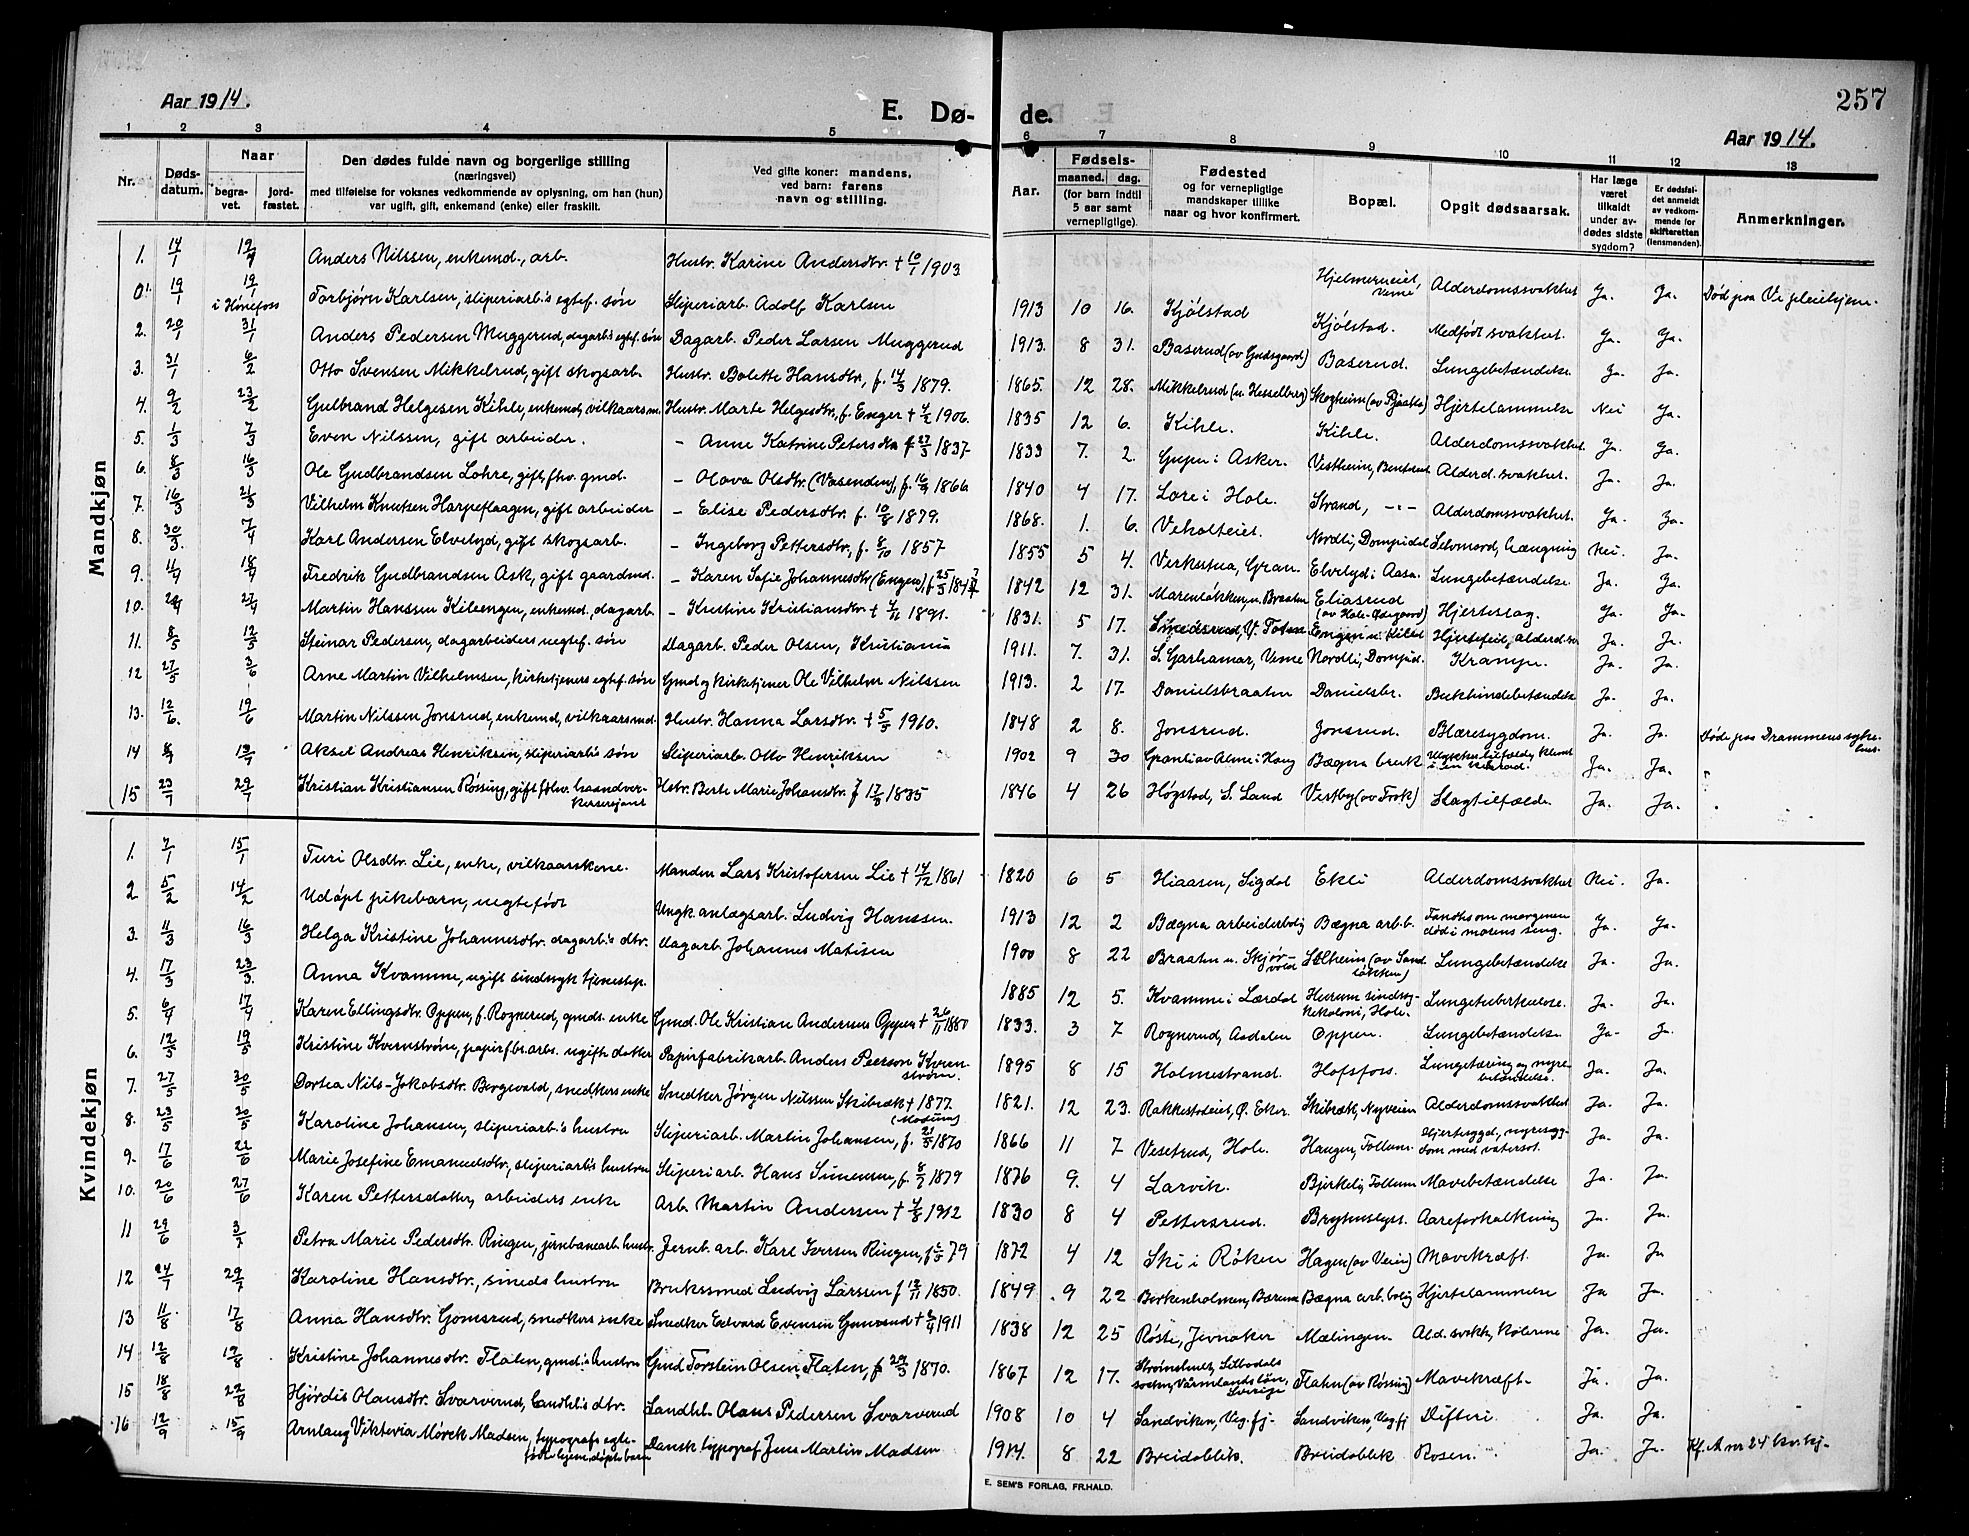 257
Aar 1914.
E. Dø-
de.
Aar 1914.
1 2 3 4 5 6 7 8 9 10 11 12 13
Nr. Døds-datum. Naar begra-vet. jord-fæstet. Den dødes fulde navn og borgerlige stilling (næringsvei) med tilføielse for voksnes vedkommende av oplysning, om han (hun) var ugift, gift, enkemand (enke) eller fraskilt. Ved gifte koner: mandens, ved barn: farens navn og stilling. Aar. Fødsels- maaned. dag. (for barn indtil 5 aar samt vernepligtige). Fødested og for vernepligtige mandskaper tillike naar og hvor konfirmert. Bopæl. Opgit dødsaarsak. Har læge været tilkaldt under av-dødes sidste sygdom? Er dødsfal-det anmeldt av vedkom-mende for skifteretten (lensmanden). Anmerkninger.
Mandkjøn
1. 14/1 Anders Nilssen, enkemd., arb. Hustr. Karine Andersdtr. † 10/1 1903. Hjelmerueiet, Veme Alderdomssvakhet Ja. Ja. Død paa Ve pleiehjem.
0. 19/1 19/1 i Hönefoss Torbjørn Karlsen, sliperiarb.s egtef. søn Sliperiarb. Adolf Karlsen 1913 10 16. Kjølstad Kjølstad. Medfødt svakhet. Ja. Ja.
2. 20/1 31/1 Anders Pedersen Muggerud, dagarb.s egtef. søn Dagarb. Peder Larsen Muggerud 1913. 8 31. Baserud (av Gudsgaard) Baserud. Lungebetændelse Ja. Ja.
3. 31/1 6/2 Otto Svensen Mikkelrud, gift skogsarb. Hustr. Bolette Hansdtr., f. 14/3 1879. 1865. 12 28. Mikkelrud (u. Hesselberg) Skogheim (av Bjaatte) Hjertelammelse Nei Ja.
4. 9/2 23/2 Gulbrand Helgesen Kihle, enkemd, vilkaarsm. Hustr. Marte Helgesdtr., f. Enger † 4/2 1906. 1835 12 6. Kihle. Kihle. Alderdomssvakhet. Ja. Ja.
5. 1/3 7/3 Even Nilssen, gift arbeider. – Anne Katrine Petersdtr f. 27/3 1837. 1833 7. 2. Gupu i Asker. Vestheim, Bentsrud Alderd. svakhet. Ja. Ja.
6. 8/3 16/3 Ole Gudbrandsen Lohre, gift, fhv. gmd. – Olava Olsdtr. (Vasenden), f. 16/9 1866 1840 4 17. Lore i Hole. Strand, -"- Alderdomssvakhet. Ja. Ja.
7. 16/3 21/3 Vilhelm Knutsen Harpeflaagen, gift arbeider – Elise Pedersdtr. f. 10/8 1879. 1868. 1. 6. Veholteiet. Nordli, Dompidal Selvmord, hængning Nei. Ja.
8. 30/3. 7/4 Karl Andersen Elvelyd, gift skogsarb. – Ingeborg Pettersdtr., f. 8/10 1857 1855 5 4. Verkutua, Gran. Elvelyd i Aasa. Lungebetændelse. Ja. Ja.
9. 11/4 18/4 Fredrik Gudbrandsen Ask, gift gaardmd. – Karen Sofie Johannesdtr (Engen), f. 25/5 184 1842 12 31. Marenløkken, u. Braaten Eliasrud (av Hole-Ødegaard) Hjerteslag. Ja. Ja.
10. 24/4 27/4 Martin Hanssen Kileengen, enkemd., dagarb. – Kristine Kristiansdtr † 4/11 1891. 1831. 5 17. Smedsrud, V. Toten Engen u. Kilen Hjertefeil, alderd.sv Ja. Ja.
11. 8/5 12/5 Steinar Pedersen, dagarbeiders uegtef. søn Dagarb. Peder Olsen, Kristiania 1911. 7. 31. S. Garhamar, Veme Nordli, Dompid. Krampe. Ja. Ja.
12 27/5 3/6 Arne Martin Vilhelmsen, kirketjeners egtef. søn Gmd og kirketjener Ole Vilhelm Nilssen 1913. 2 17. Danielsbraaten Danielsbr. Bukhindebetændelse Ja. Ja.
13. 12/6. 19/6 Martin Nilssen Jonsrud, enkemd, vilkaarsmd. Hustr. Hanna Larsdtr. † 5/5 1910. 1848 2 8. Jonsrud. Jonsrud. Blæresygdom. Ja. Ja. Døde paa Drammens sykehus.
14 8/7 13/7 Aksel Andreas Henriksen, sliperiarb.s søn Sliperiarb. Otto Henriksen 1902 9 30 Granli av Alme i Haug Bægna bruk Ulykkestilfælde, klemt i en Ja. Ja. "
15 23/7 29/7 Kristian Kristiansen Røssing, gift, fhv. haandverkssersjant Hstr. Berte Marie Johansdtr f 17/5 1835 1846 4 26 Høgstad, S. Land Vestby (av Trok) Slagtilfælde. Ja. Ja. .
Kvindekjøn
1. 7/1 15/1 Turi Olsdtr. Lie, enke, vilkaarskone. Manden Lars Kristofersen Lie † 14/12 1861 1820 6 5 Hiaasen, Sigdal Ekli Alderdomssvakhet Nei. Ja.
2 5/2 14/2 Udøpt pikebarn, uegtefødt Ungk. anlægsarb. Ludvig Hanssen. 1913 12 2 Bægna arbeiderbolig Bægna arb.b. Fandts om morgenen død i morens seng. Ja. Ja.
3. 11/3 16/3 Helga Kristine Johannesdtr. dagarb.s dtr. Dagarb. Johannes Matisen 1900 8 22 Braaten u. Skjørvold Solheim (av Sandløkken) Lungebetændelse Ja. Ja.
4. 17/3 23/3. Anna Kvamme, ugift sindssyk tjenestep. 1885 12 5. Kvamme i Lærdal Hurum sindssykekoloni, Hole. Lungetuberkulose. Ja. Ja.
5. 6/4 17/4 Karen Ellingsdtr Oppen, f. Rognerud, gmds. enke Gmd. Ole Kristian Andersens Oppen † 26/11 1880 1833. 3 7 Rognerud, Aadalen Oppen. Lungebetændelse Ja. Ja.
6. 12/5 19/5 Kristine Kvernstrøm, papirfbr.arbs. ugifte datter Papirfabrikarb. Anders Peerson Kvernstrøm. 1895 8 15 Holmestrand. Hofsfoss. Lungetæring og nyrebetændelse. Ja. Ja.
7. 27/5 30/5 Dortea Nils-Jakobsdtr. Borgevald, snedkers enke Snedker Jørgen Nilssen Skibræk † 1877 (Modum) 1821. 12 23. Rakkestadeiet, Ø. Eker. Skibræk, Nyveien Alderdomssvakhet Ja. Ja.
8. 23/5 30/5 Karoline Johansen, sliperiarb.s hustru Sliperiarb. Martin Johansen, f. 21/5 1870 1866 11 7 Vesetrud, Hole. Haugen, Follum. Hjertesygd., nyresygdom med vatersot. Ja. Ja.
9. 17/6 22/6 Marie Josefine Emanuelsdtr., sliperiarb.s hustru Sliperiarb. Hans Simensen, f. 8/2 1879 1876 9. 4 Larvik. Bjerkeli, Follum Mavebetændelse Ja. Ja.
10. 20/6 27/6 Karen Pettersdatter, arbeiders enke Arb. Martin Andersen † 4/8 1912 1830 8 4 Pettersrud. Bryhnslyst. Aareforkalkning Ja. Ja.
11 29/6 3/7 Petra Marie Pedersdtr. Ringen, jernbanearb. hustr. Jernb. arb. Karl Iversen Ringen, f 6/5 79 1872 4 12 Ski i Røken Hagen (av Veien) Mavekræft. Ja. Ja
12 24/7 29/7 Karoline Hansdtr., smeds hustru Brukssmed Ludvig Larssen f 12/11 1850. 1849 9 22 Birkenholmen, Bærum Bægna arb.bolig Hjertelammelse Ja Ja.
13 11/8 17/8 Anna Hansdtr. Gomsrud, snedkers enke Snedker Edvard Evensen Gomsrud † 2/4 1911 1838 12 25 Røste, Jevnaker Mælingen. Ald. svakh, kolerine Ja. Ja.
14 12/8 19/8 Kristine Johannesdtr. Flaten, gmd.s hustru Gmd Torstein Olsen Flaten, f 29/3 1870. 1867 12 17. Strømshult, Silbodals socken, Värmlands län, Sverige Flaten (av Røssing) Mavekræft. Ja. Ja.
15 18/8 22/8 Hjørdis Olausdtr. Svarverud, landhl.s dtr. Landhl. Olaus Pedersen Svarverud 1908 10 4 Sandviken, Veg.fj. Sandviken, Veg.fj Difteri. Ja. Ja.
16 12/9 15/9 Arnlaug Viktoria Mørck Madsen, typografs egtefødte hjemmedøpte barn Dansk typograf Jens Martin Madsen 1914. 8 22 Breidablik. Breidablik Rosen. Ja. Ja. Kf. A nr 24 kvkj.
E. SEM'S FORLAG, FR.HALD.